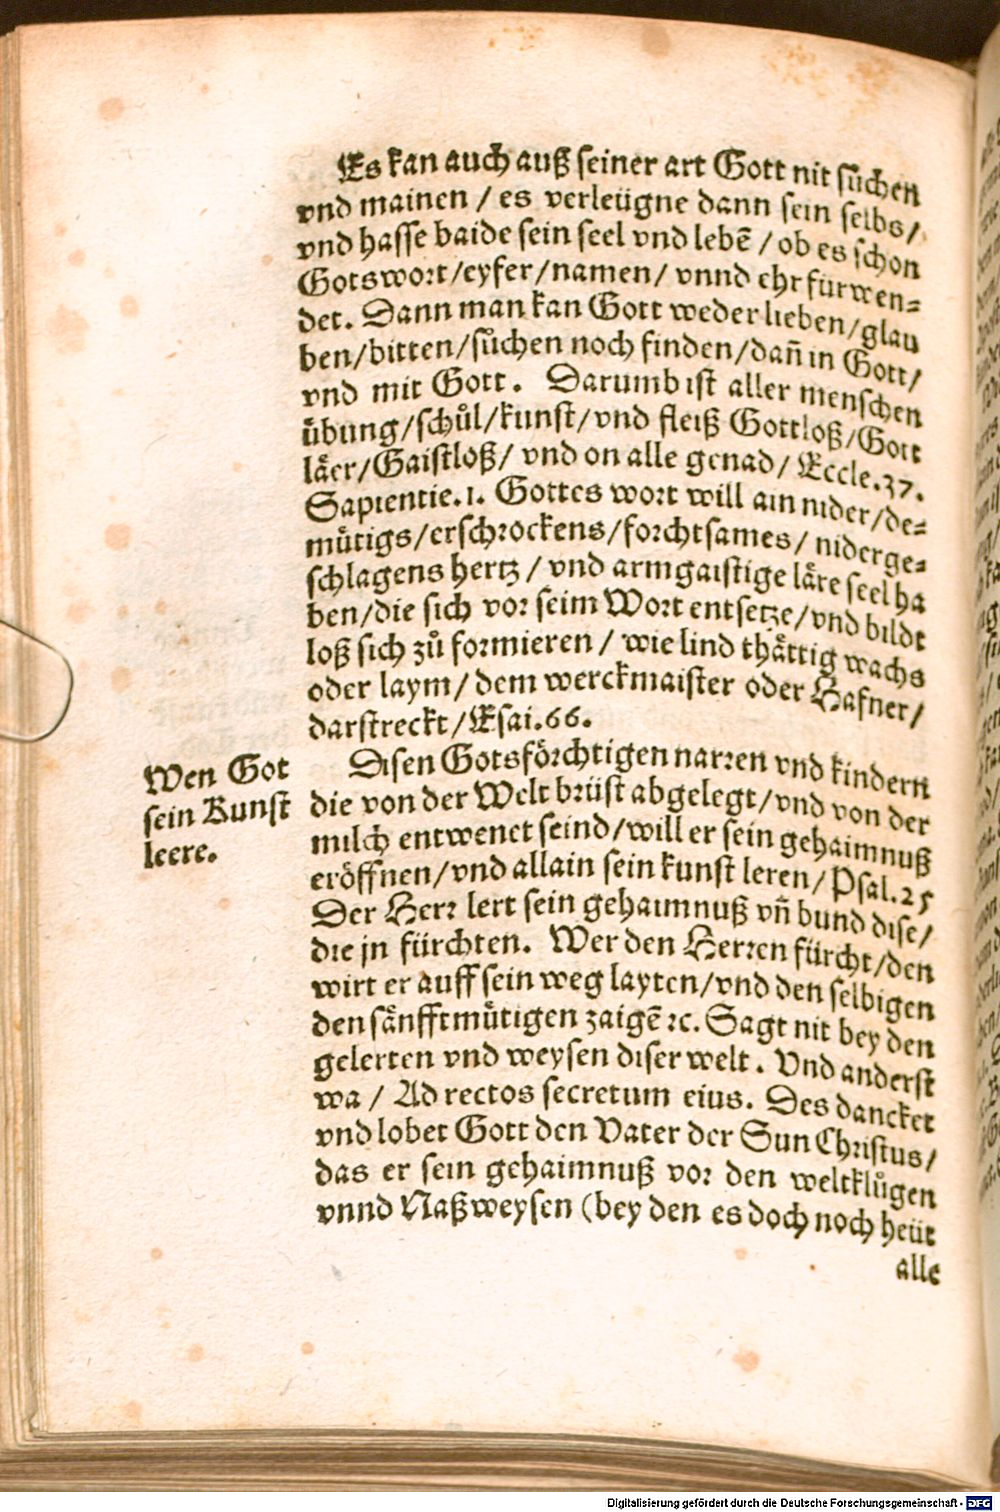 Es kan auch auß seiner art Gott nit sůchen
vnd mainen / es verleügne dann sein selbs /
vnd hasse baide sein seel vnd lebẽ / ob es schon
Gotswort / eyfer / namen / vnnd ehr fürwen=
det. Dann man kan Gott weder lieben / glau
ben / bitten / sůchen noch finden / dañ in Gott /
vnd mit Gott. Darumb ist aller menschen
übung / schůl / kunst / vnd fleiß Gottloß / Gott
läer / Gaistloß / vnd on alle genad / Eccle. 37.
Sapientie. 1. Gottes wort will ain nider / de=
mütigs / erschrockens / forchtsames / niderge=
schlagens hertz / vnd armgaistige läre seel ha
ben / die sich vor seim Wort entsetze / vnd bildt
loß sich zů formieren / wie lind thättig wachs
oder laym / dem werckmaister oder Hafner /
darstreckt / Esai. 66.
Wen Got
sein Kunst
leere.
Disen Gotsförchtigen narren vnd kindern
die von der Welt brüst abgelegt / vnd von der
milch entwenet seind / will er sein gehaimnuß
eröffnen / vnd allain sein kunst leren / Psal. 25
Der Herr lert sein gehaimnuß vñ bund dise /
die jn fürchten. Wer den Herren fürcht / den
wirt er auff sein weg layten / vnd den selbigen
den sänfftmütigen zaigẽ ꝛc. Sagt nit bey den
gelerten vnd weysen diser welt. Vnd anderst
wa / Ad rectos secretum eius. Des dancket
vnd lobet Gott den Vater der Sun Christus /
das er sein gehaimnuß vor den weltklůgen
vnnd Naßweysen (bey den es doch noch heüt
alle
Digitalisierung gefördert durch die Deutsche Forschungsgemeinschaft - DFG